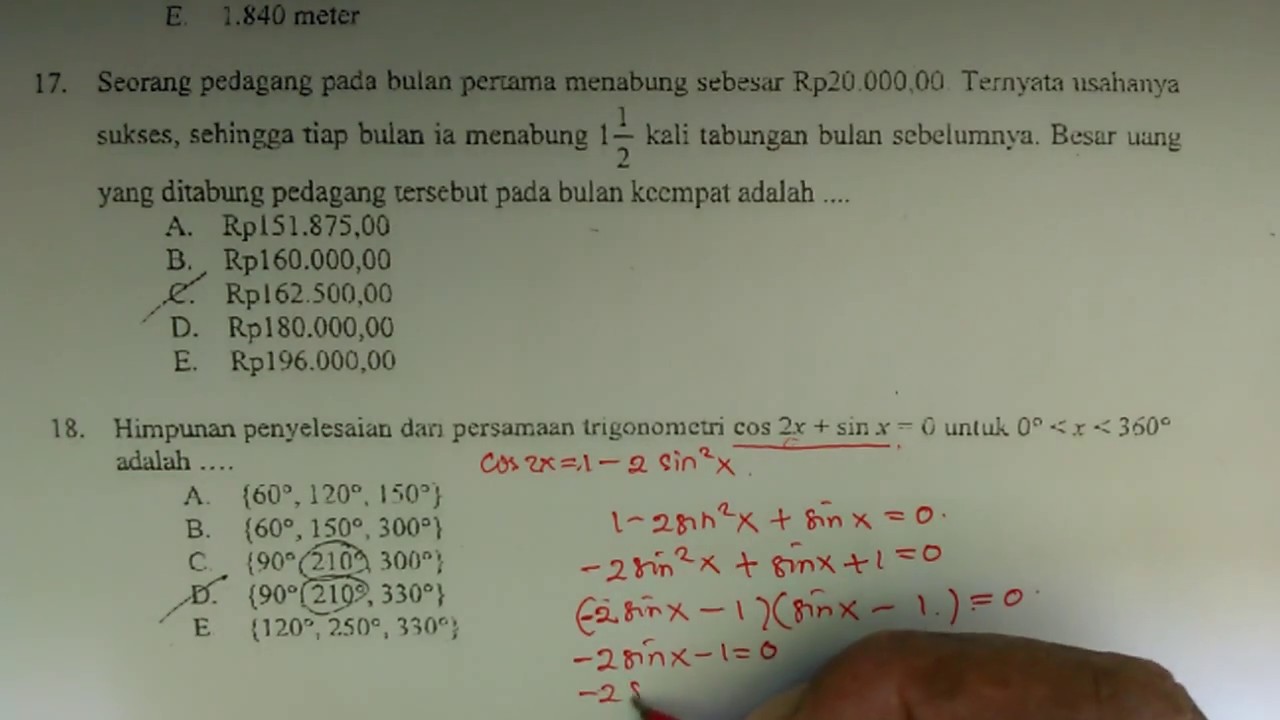 E. 1.840 meter
17. Seorang pedagang pada bulan pertama menabung sebesar Rp20.000,00. Ternyata usahanya
sukses, sehingga tiap bulan ia menabung 1 1/2 kali tabungan bulan sebelumnya. Besar uang
yang ditabung pedagang tersebut pada bulan keempat adalah ....
A. Rp151.875,00
B. Rp160.000,00
C. Rp162.500,00
D. Rp180.000,00
E. Rp196.000,00
18. Himpunan penyelesaian dari persamaan trigonometri cos 2x + sin x = 0 untuk 0° < x < 360°
adalah ....
cos 2x = 1 - 2 sin²x.
A. {60°, 120°, 150°}
B. {60°, 150°, 300°}
C. {90°, 210°, 300°}
D. {90°, 210°, 330°}
E. {120°, 250°, 330°}
1 - 2 sin²x + sin x = 0.
-2 sin²x + sin x + 1 = 0
(-2 sin x - 1)(sin x - 1.) = 0.
-2 sin x - 1 = 0
-2 s